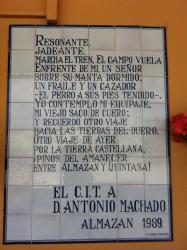 RESONANTE,
JADEANTE,
MARCHA EL TREN. EL CAMPO VUELA
ENFRENTE DE MI, UN SEÑOR
SOBRE SU MANTA DORMIDO;
UN FRAILE Y UN CAZADOR
-EL PERRO A SUS PIES TENDIDO-.
YO CONTEMPLO MI EQUIPAJE,
MI VIEJO SACO DE CUERO;
Y RECUERDO OTRO VIAJE
HACIA LAS TIERRAS DEL DUERO.
OTRO VIAJE DE AYER
POR LA TIERRA CASTELLANA,
¡PINOS DEL AMANECER
ENTRE ALMAZAN Y QUINTANA!
EL C.I.T. A
D. ANTONIO MACHADO
ALMAZAN 1989.